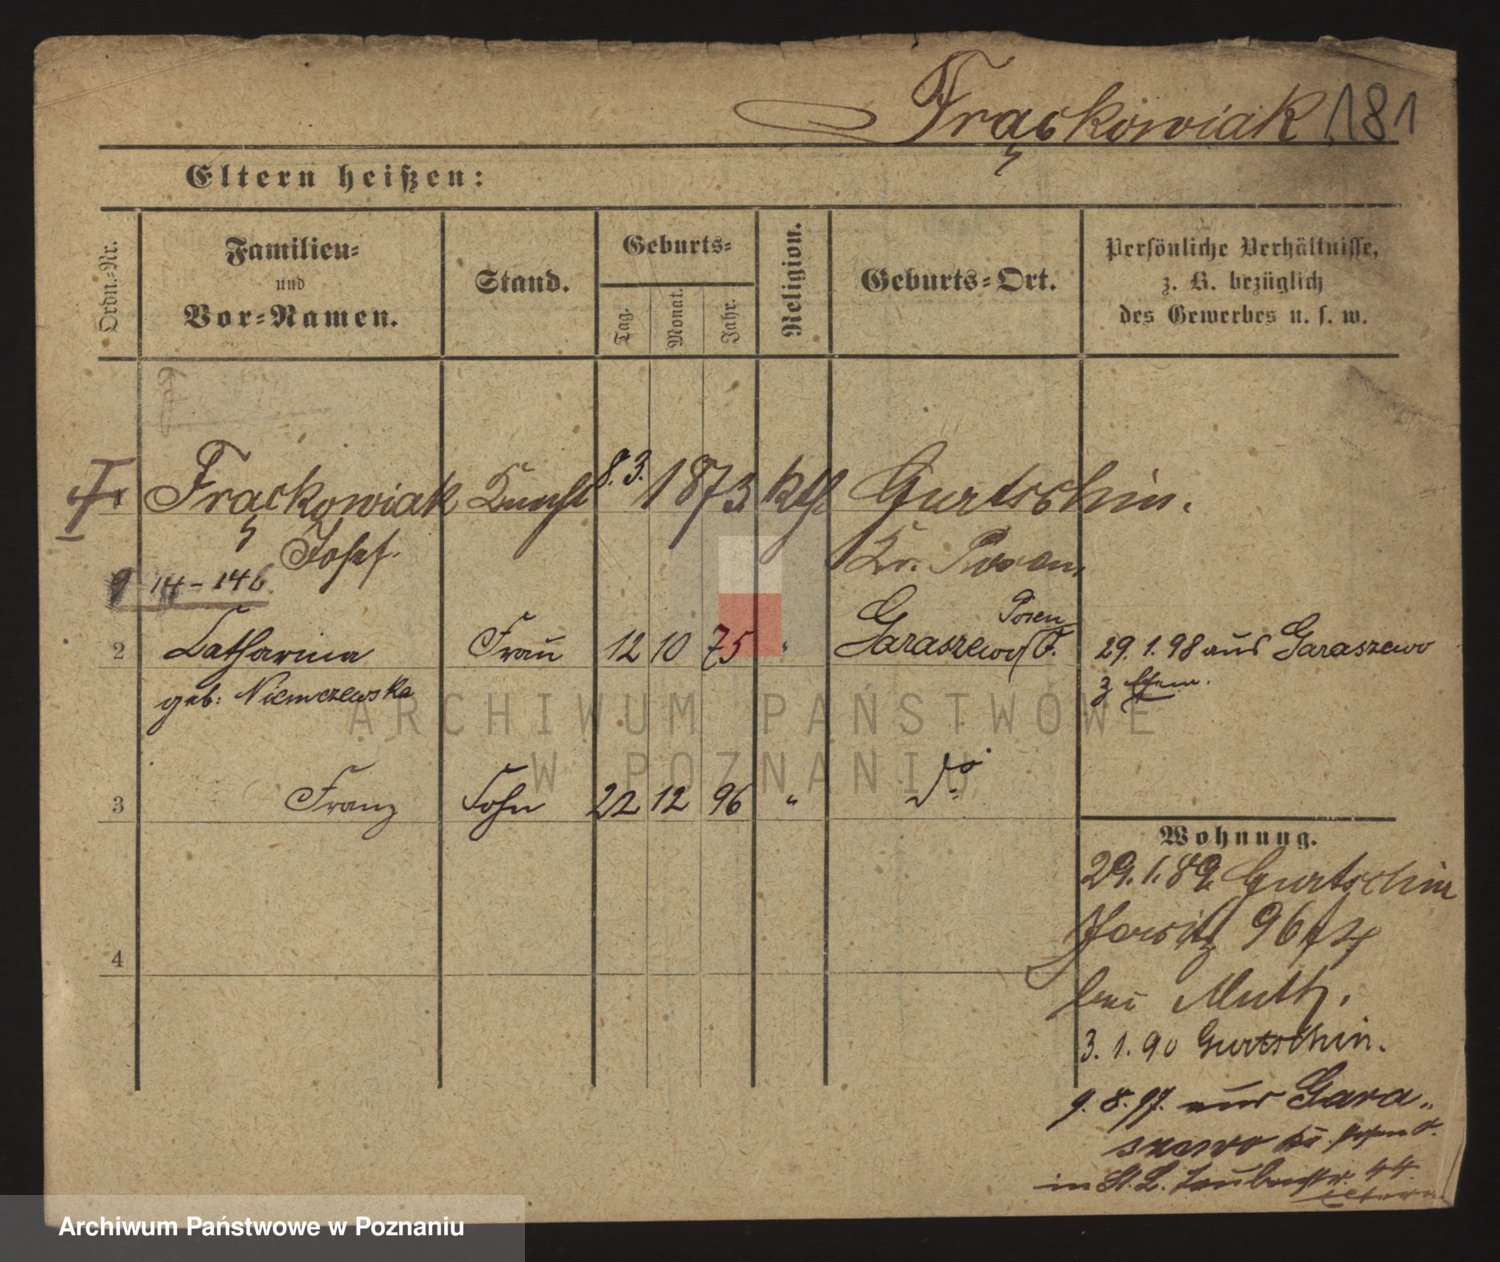 Frąckowiak 181
Eltern heißen:
Ordn.-Nr.
Familien-
und
Vor-Namen.
Stand.
Geburts-
Tag.
Monat.
Jahr.
Religion.
Geburts-Ort.
Persönliche Verhältnisse,
z. B. bezüglich
des Gewerbes u. s. w.
1 Frąckowiak Knecht 8. 3. 1873 kth Gurtschin.
Josef. Kr. Posen
9 14-146.
2 Catharina Frau 12 10 75 " Garaszewo Posen O. 29. 1. 98 aus Garaszewo
geb: Niemczewska z Ehem.
3 Franz Sohn 22 12 96 " do
Wohnung.
29. 1. 89 Gurtschin
Jersitz 96
4
bei Muth.
3. 1. 90 Gurtschin.
9. 8. 97. aus Gara-
szewo Kr. Posen O.
in St. L. 44.
Eltern
ARCHIWUM PAŃSTWOWE
W POZNANIU
Archiwum Państwowe w Poznaniu